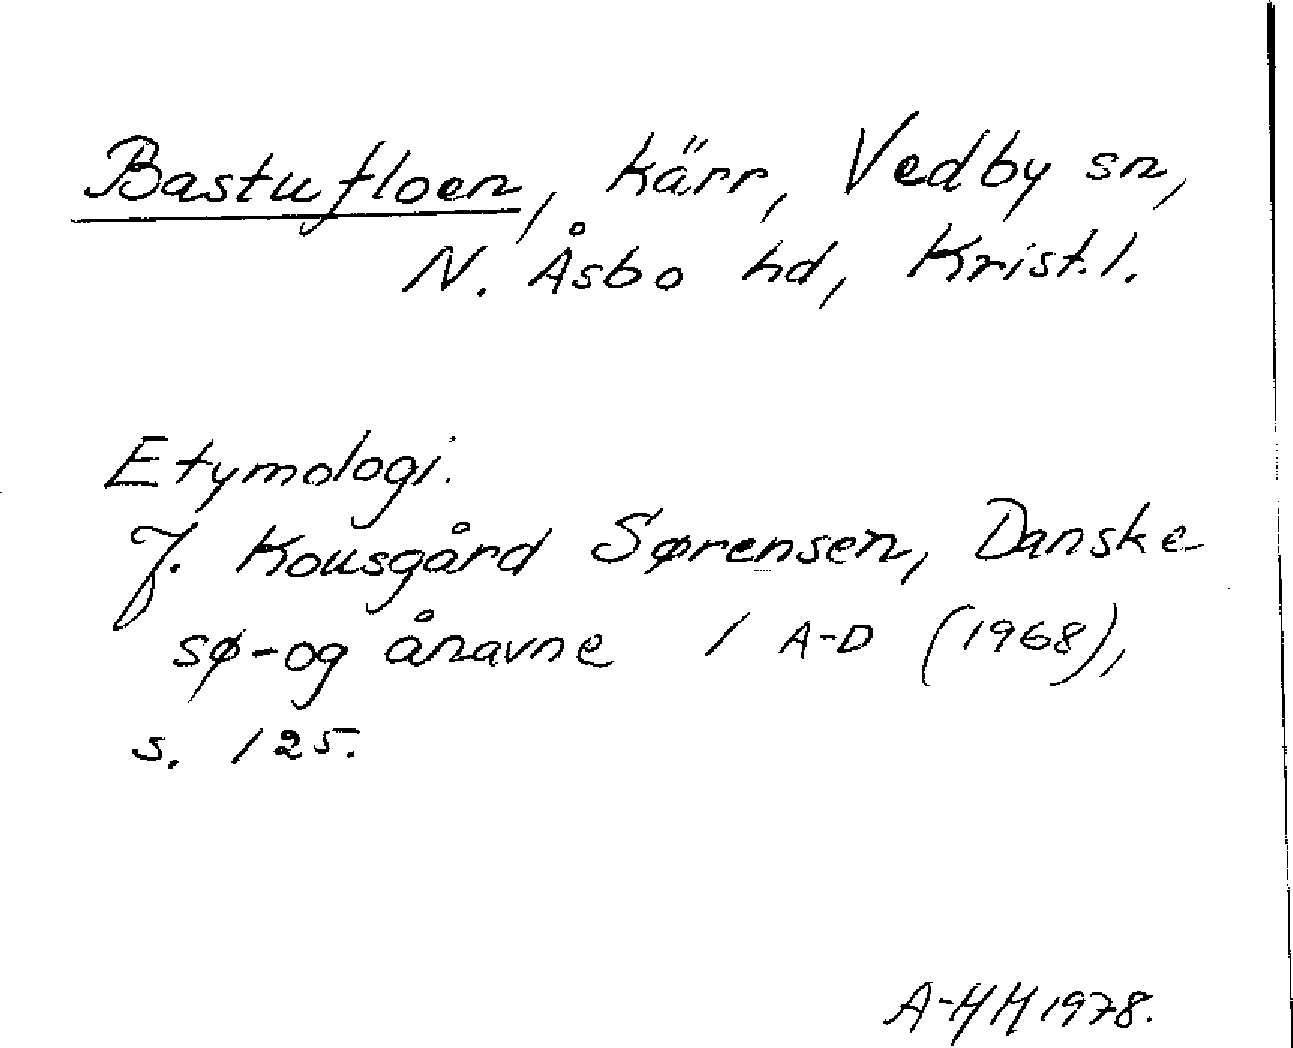 Bastufloen, kärr, Vedby sn,
N. Åsbo hd, Krist.l.
Etymologi.
J. Kousgård Sørensen, Danske
sø-og ånavne 1 A-D (1968),
s. 125.
A-HH 1978.